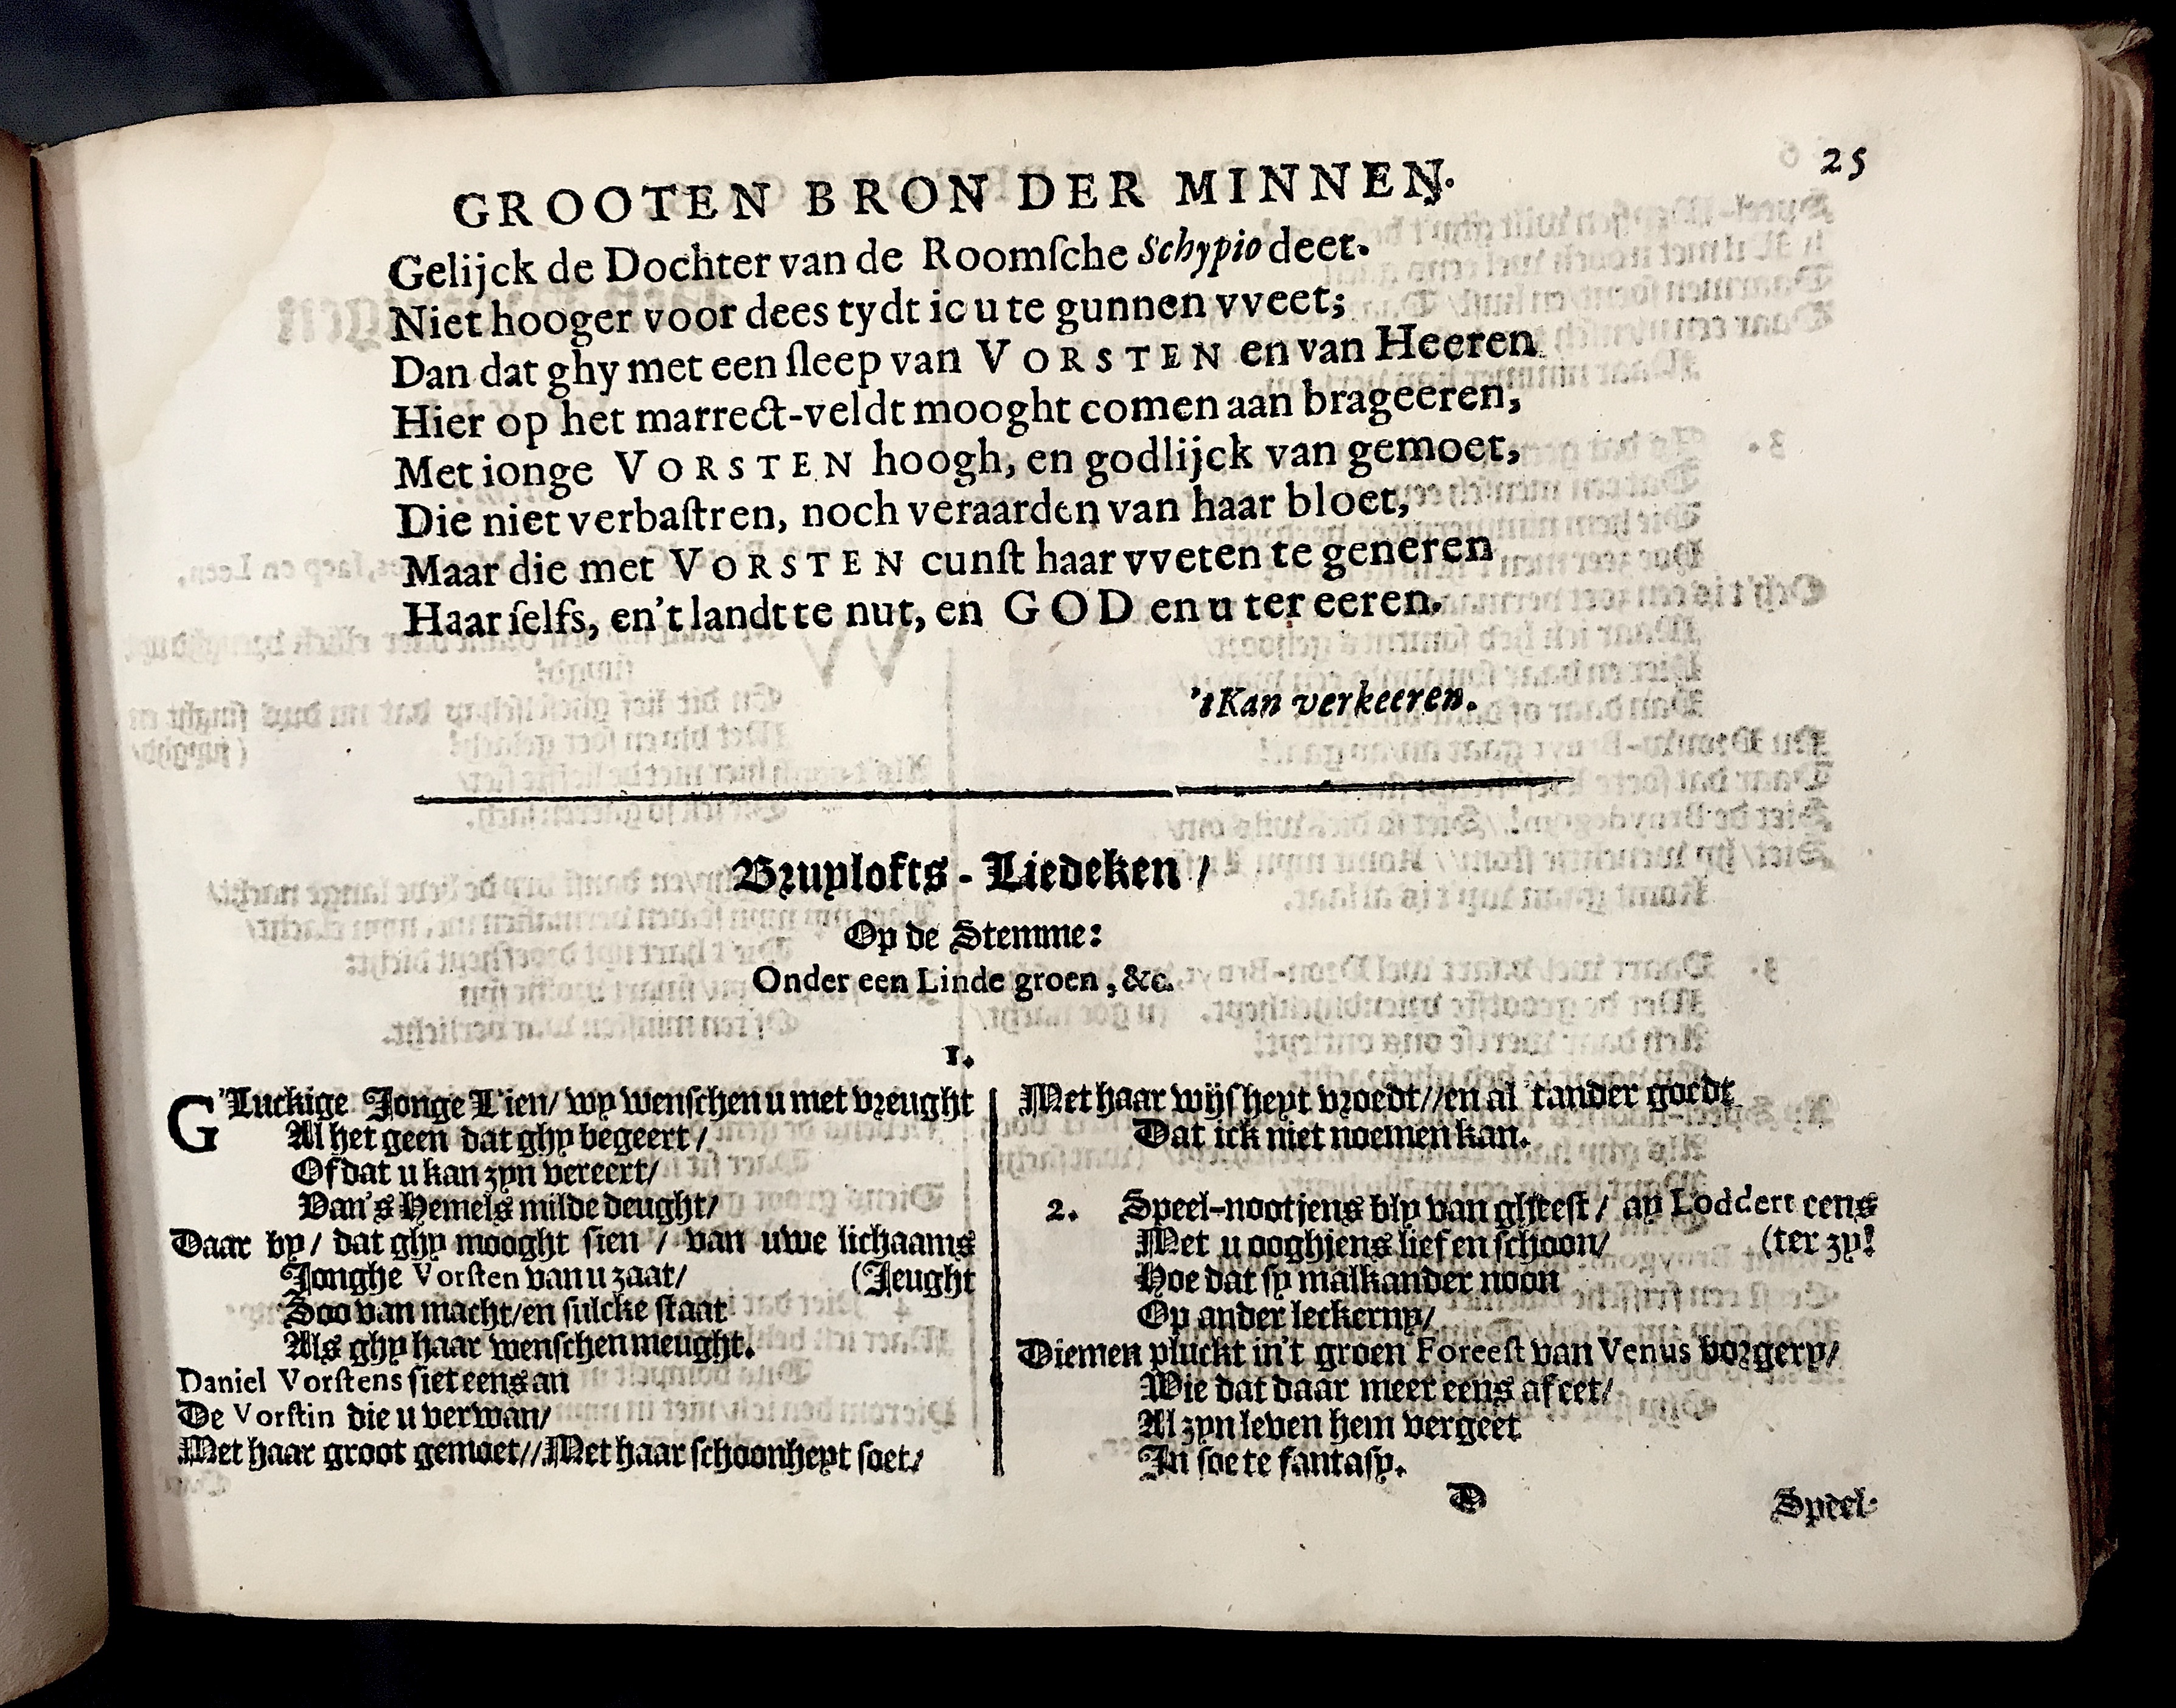 GROOTEN BRON DER MINNEN.
25
Gelijck de Dochter van de Roomſche Schypio deet.
Niet hooger voor dees tydt ic u te gunnen vveet;
Dan dat ghy met een ſleep van VORSTEN en van Heeren
Hier op het marrect-veldt mooght comen aan brageeren,
Met ionge VORSTEN hoogh, en godlijck van gemoet,
Die niet verbaſtren, noch veraarden van haar bloet,
Maar die met VORSTEN cunſt haar vveten te generen
Haar ſelfs, en't landt te nut, en GOD en u ter eeren.
't Kan verkeeren.
Bruylofts-Liedeken /
Op de Stemme:
Onder een Linde groen, &c.
1.
G'Luckige Jonge L'ien/ wy wenschen u met vreught
Al het geen dat ghy begeert /
Of dat u kan zyn vereert/
Van 's Hemels milde deught/
Daar by / dat ghy mooght sien / van uwe lichaams
Jonghe Vorſten van u zaat/ (Jeught
Soo van macht/en sulcke staat
Als ghy haar wenschen meught.
Daniel Vorſtens siet eens an
De Vorſtin die u verwan/
Met haar groot gemoet//Met haar schoonheyt soet/
Met haar wijsheyt vroedt//en al 'tander goedt
Dat ick niet noemen kan.
2. Speel-nootjens bly van gheest / ay Loddert eens
Met u ooghjens lief en schoon/ (ter zy!
Hoe dat sy malkander noon
Op ander leckerny/
Diemen pluckt in't groen Foreeſt van Venus borgery/
Wie dat daar meer eens af eet/
Al zyn leven hem vergeet
In soete fantasy.
D
Speel-